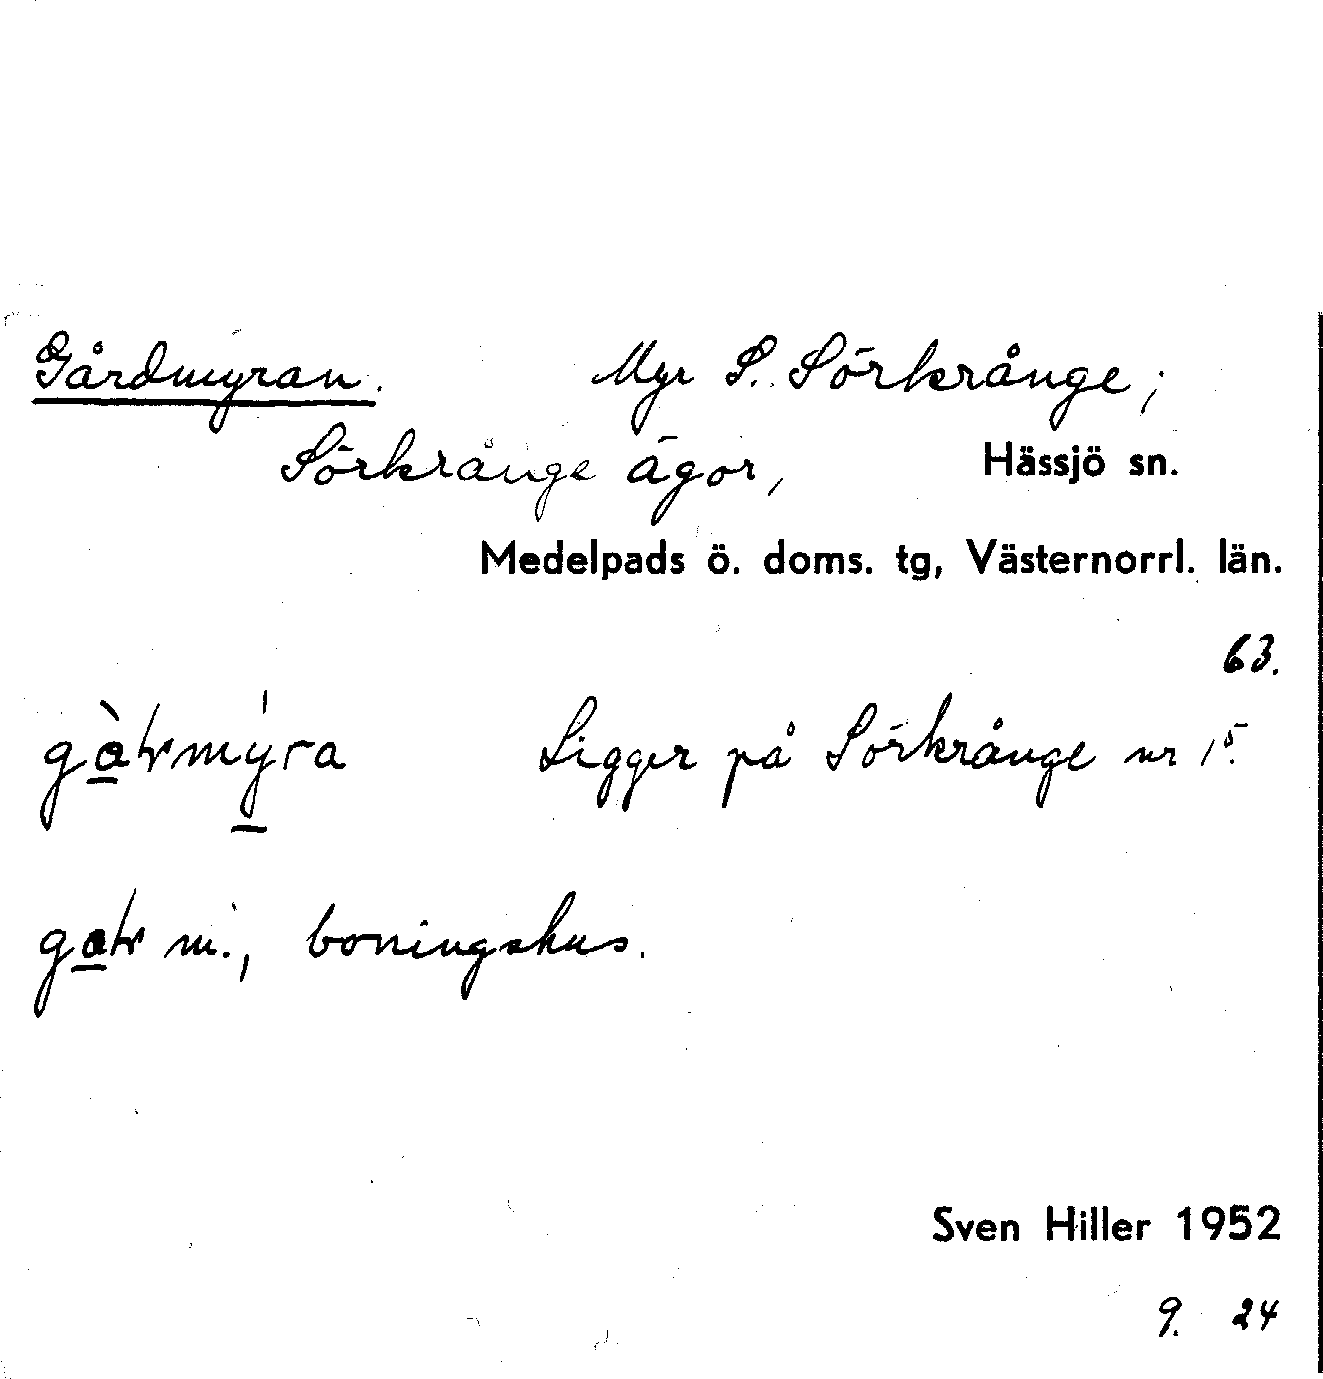 Gårdmyran. Myr S. Sörkrånge;
Sörkrånge ägor, Hässjö sn.
Medelpads ö. doms. tg, Västernorrl. län.
63.
Ligger på Sörkrånge nr 1⁵.
m., boningshus.
Sven Hiller 1952
9. 24